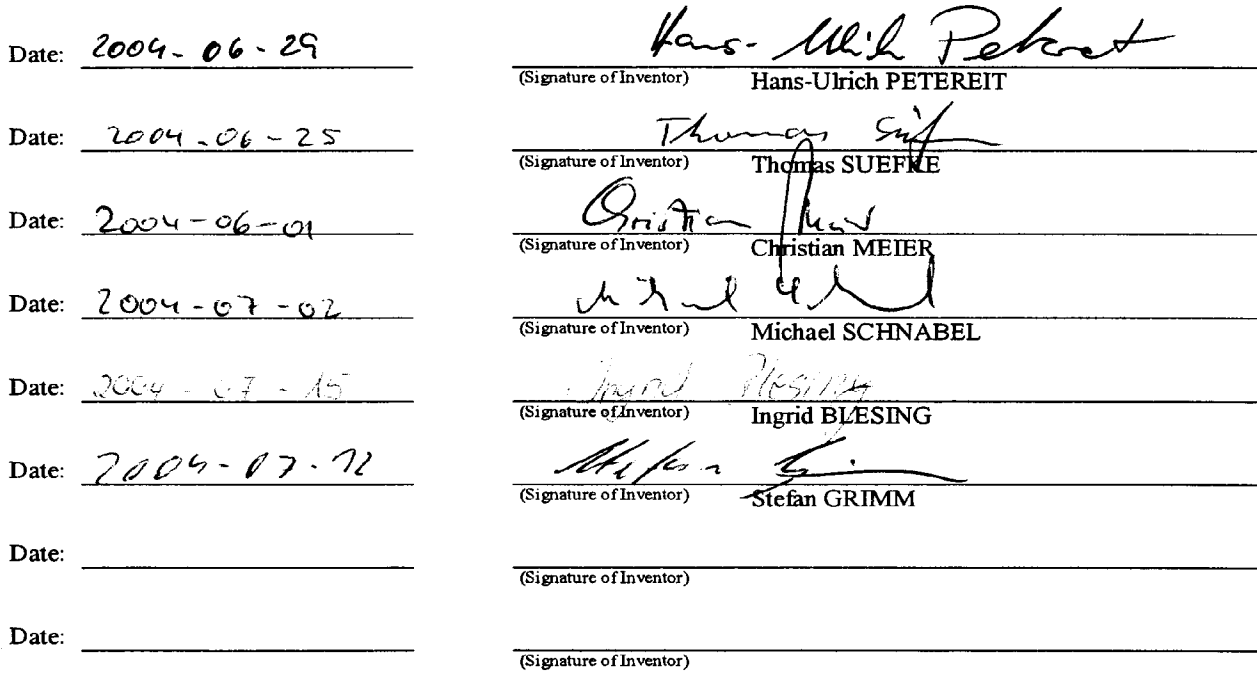 Date: 2004-06-29 Hans-Ulrich Petereit
(Signature of Inventor) Hans-Ulrich PETEREIT
Date: 2004-06-25 Thomas Süfke
(Signature of Inventor) Thomas SUEFKE
Date: 2004-06-01 Christian Meier
(Signature of Inventor) Christian MEIER
Date: 2004-07-02 Michael
(Signature of Inventor) Michael SCHNABEL
Date: 2004-07-15 Ingrid Blesing
(Signature of Inventor) Ingrid BLESING
Date: 2004-07-12 Stefan Grimm
(Signature of Inventor) Stefan GRIMM
Date:
(Signature of Inventor)
Date:
(Signature of Inventor)